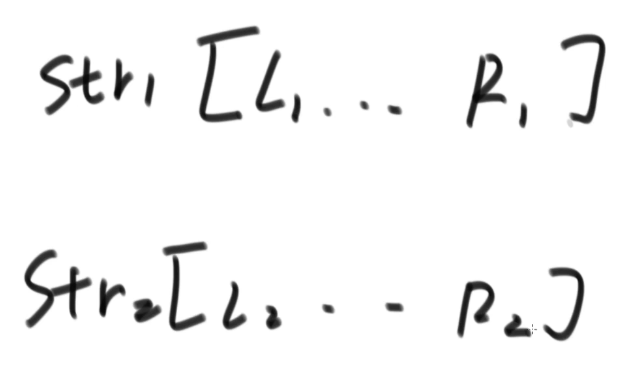 str₁ [L₁... R₁]
Str₂[L₂... R₂]